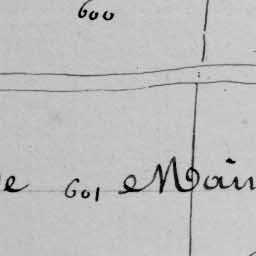 600
e 601 Main